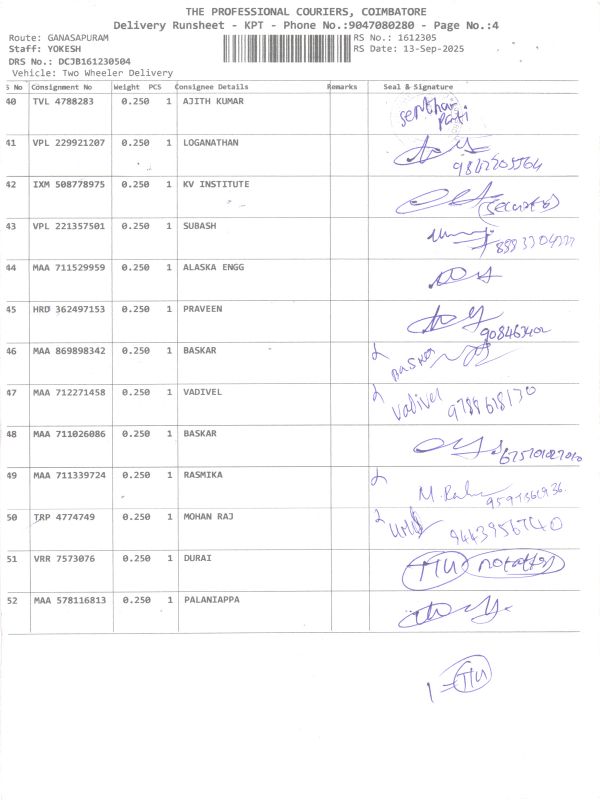 THE PROFESSIONAL COURIERS, COIMBATORE
Delivery Runsheet - KPT - Phone No.:9047080280 - Page No.:4
Route: GANASAPURAM RS No.: 1612305
Staff: YOKESH RS Date: 13-Sep-2025
DRS No.: DCJB161230504
Vehicle: Two Wheeler Delivery
S No Consignment No Weight PCS Consignee Details Remarks Seal & Signature
40 TVL 4788283 0.250 1 AJITH KUMAR
41 VPL 229921207 0.250 1 LOGANATHAN
42 IXM 508778975 0.250 1 KV INSTITUTE
43 VPL 221357501 0.250 1 SUBASH
44 MAA 711529959 0.250 1 ALASKA ENGG
45 HRD 362497153 0.250 1 PRAVEEN
46 MAA 869898342 0.250 1 BASKAR Basker
47 MAA 712271458 0.250 1 VADIVEL Vadivel 9788618130
48 MAA 711026086 0.250 1 BASKAR
49 MAA 711339724 0.250 1 RASMIKA
50 TRP 4774749 0.250 1 MOHAN RAJ
51 VRR 7573076 0.250 1 DURAI
52 MAA 578116813 0.250 1 PALANIAPPA